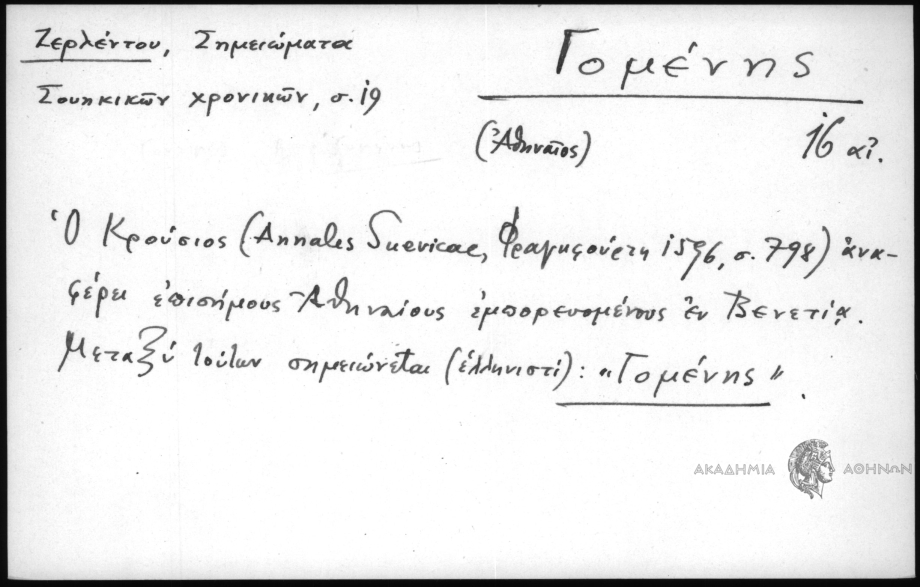 Ζερλέντου, Σημειώματα
Σουηκικῶν χρονικῶν, σ. 19
Γομένης
(Ἀθηναῖος)
16 αἰ.
Ὁ Κρούσιος (Annales Suevicae, Φραγκφούρτη 1596, σ. 798) ἀνα-
φέρει ἐπισήμους Ἀθηναίους ἐμπορευομένους ἐν Βενετίᾳ.
Μεταξὺ τούτων σημειώνεται (ἑλληνιστί): "Γομένης".
ΑΚΑΔΗΜΙΑ ΑΘΗΝΩΝ